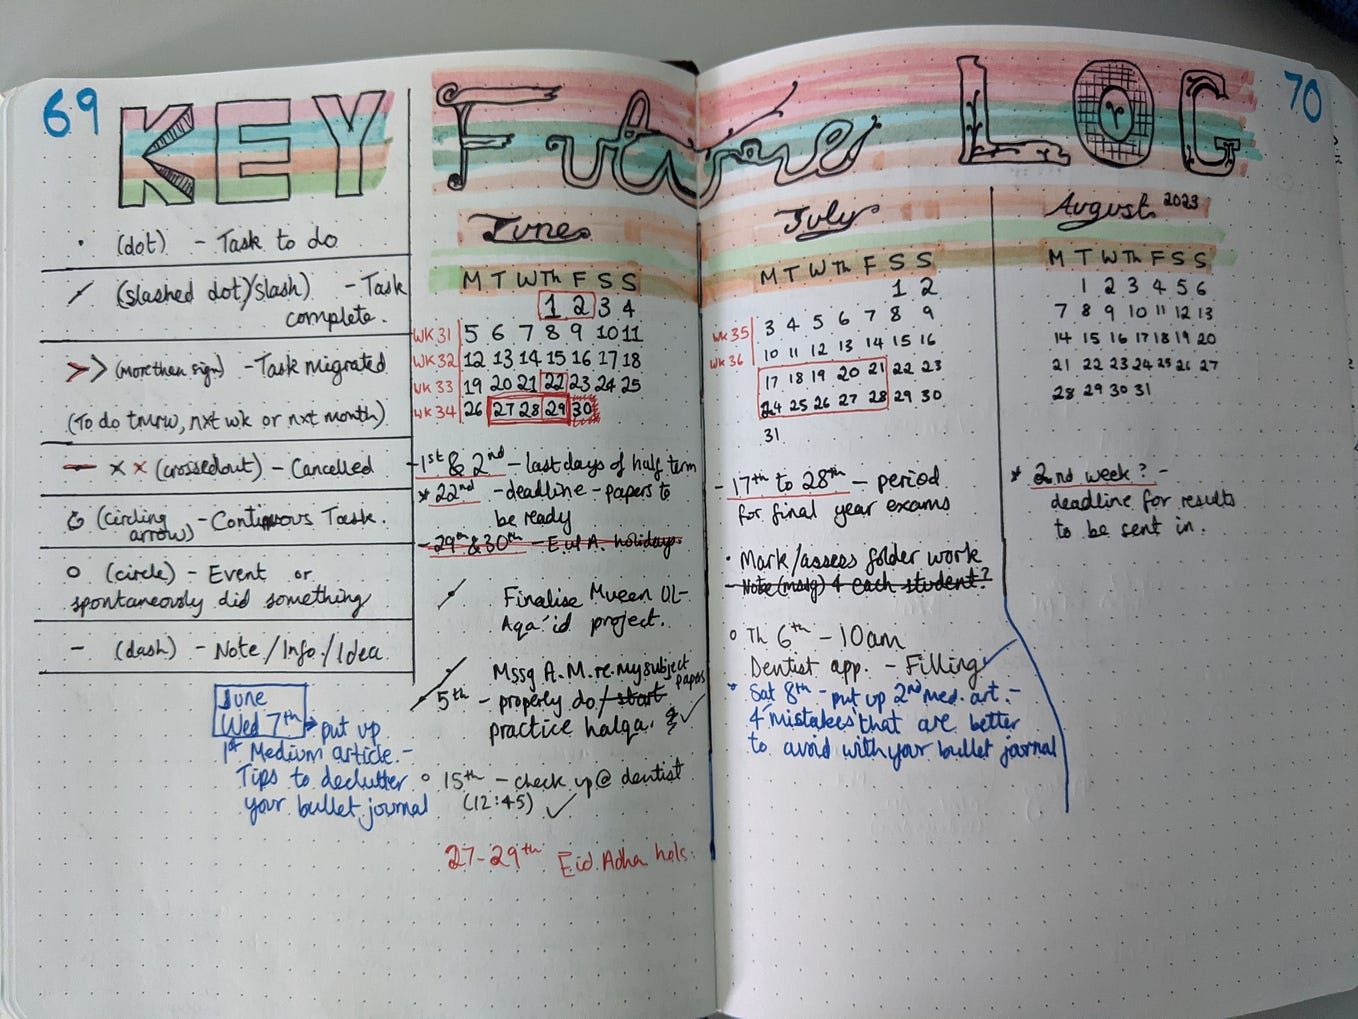 69
KEY
• (dot) - Task to do
(slashed dot)/slash) - Task
complete.
> > (more than sign) - Task migrated
(To do tmrw, nxt wk or nxt month)
— x x (crossed out) - Cancelled
(circling
arrows) - Continuous Task.
o (circle) - Event or
spontaneously did something
- (dash) - Note/Info/Idea
June
Wed 7th → put up
1st Medium article. -
Tips to declutter
your bullet journal
Future LOG
70
June
M T W Th F S S
1 2 3 4
WK 31 5 6 7 8 9 10 11
WK 32 12 13 14 15 16 17 18
WK 33 19 20 21 22 23 24 25
WK 34 26 27 28 29 30
- 1st & 2nd - last days of half term
* 22nd - deadline - papers to
be ready
- 29th & 30th - E ul A. holidays.
Finalise Mueen Ul-
Aqa'id project.
Mssg A.M. re. my subject
papers
5th - properly do/start
practice halqa. ✓
o 15th - check up @ dentist
(12:45) ✓
27-29th Eid Adha hols.
July
M T W Th F S S
1 2
WK 35 3 4 5 6 7 8 9
WK 36 10 11 12 13 14 15 16
17 18 19 20 21 22 23
24 25 26 27 28 29 30
31
- 17th to 28th - period
for final year exams
• Mark/assess folder work
- Note (mssg) 4 each student?
o Th 6th - 10am
Dentist app. - Filling ✓
• Sat 8th - put up 2nd med. art. -
4 'mistakes' that are better
to avoid with your bullet journal
August 2023
M T W Th F S S
1 2 3 4 5 6
7 8 9 10 11 12 13
14 15 16 17 18 19 20
21 22 23 24 25 26 27
28 29 30 31
* 2nd week? -
deadline for results
to be sent in.